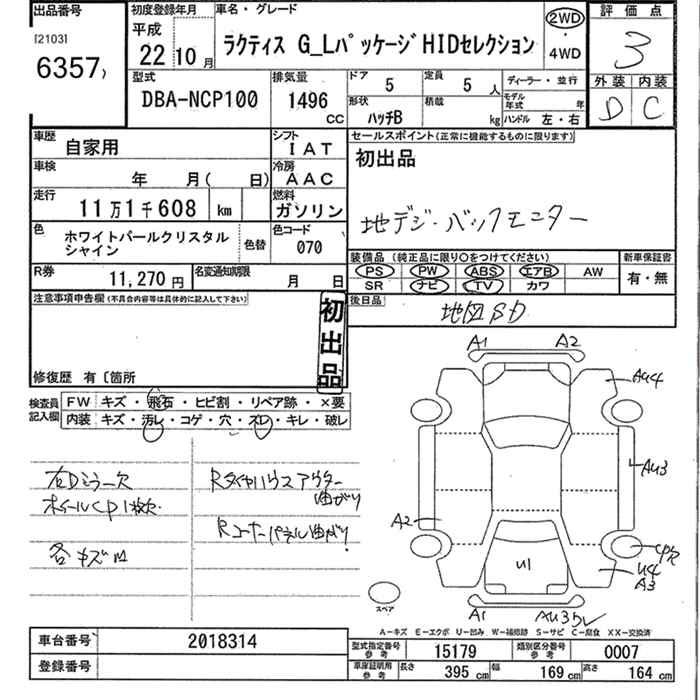 出品番号
[2103]
6357)
初度登録年月
平成
22年 10月
車名・グレード
ラクティス G_Lパッケージ HIDセレクション
2WD
・
4WD
評価点
3
外装 内装
D C
型式
DBA-NCP100
排気量
1496 CC
ドア 5
定員 5 人
形状 ハッチB
積載 kg
ディーラー・並行
モデル年式 年
ハンドル 左・右
車歴 自家用
シフト IAT
車検 年 月( 日)
冷房 AAC
走行 11万1千608 km
燃料 ガソリン
色 ホワイトパールクリスタルシャイン
色替
色コード 070
R券 11,270円
名変通知期限 月 日
セールスポイント(正常に機能するものに限ります)
初出品
地デジ・バックモニター
装備品 (純正品に限り○をつけてください)
PS PW ABS エアB AW
SR ナビ TV カワ
新車保証書
有・無
後日品 地図SD
注意事項申告欄(不具合内容等は具体的に記入して下さい)
初出品
修復歴 有〔箇所
検査員記入欄
FW キズ・飛石・ヒビ割・リペア跡・×要
内装 キズ・汚レ・コゲ・穴・スレ・キレ・破レ
右Dミラー欠
ホイールCP1枚欠
各キズ凹
Rタイヤハウスアウター曲がり
Rコーナーパネル曲がり
A1 A2
AU4
AU3
A2
CPR
U4
A3
U1
A1
スペア
A−キズ E−エクボ U−凹み W−補修跡 S−サビ C−腐食 XX−交換済
車台番号 2018314
登録番号
型式指定番号 参考 15179
類別区分番号 参考 0007
車庫証明用 参考
長さ 395 cm
幅 169 cm
高さ 164 cm